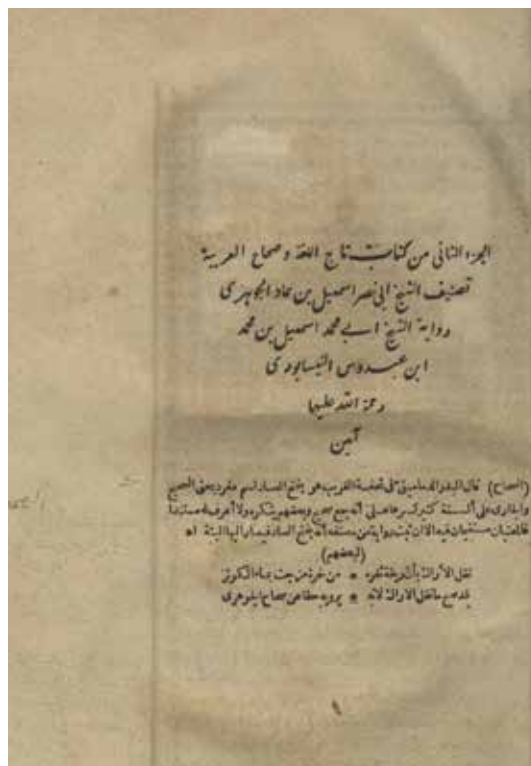 الجزء الثاني من كتاب تاج اللغة وصحاح العربية
تصنيف الشيخ ابى نصر اسمعيل بن حماد الجوهرى
رواية الشيخ ابى محمد اسمعيل بن محمد
ابن عبدوس النيسابورى
رحمة الله عليهما
آمين
(الصحاح) قال البدر الدمامينى فى تحفة الغريب هو بفتح الصاد اسم مفرد بمعنى الصحيح
والجارى على ألسنة كثير كسرها على أنه جمع صحيح وبعضهم ينكره ولا أعرف له مستندا
فيه الا ان ثبت رواية عن مصنفه أنه بفتح الصاد فيصار اليها البتة اه
(لبعضهم)
نقل الأراك بأن ريقة ثغره * من خمرة مزجت بماء الكوثر
قد صح ما نقل الاراك لانه * يرويه حقا عن صحاح الجوهرى
١